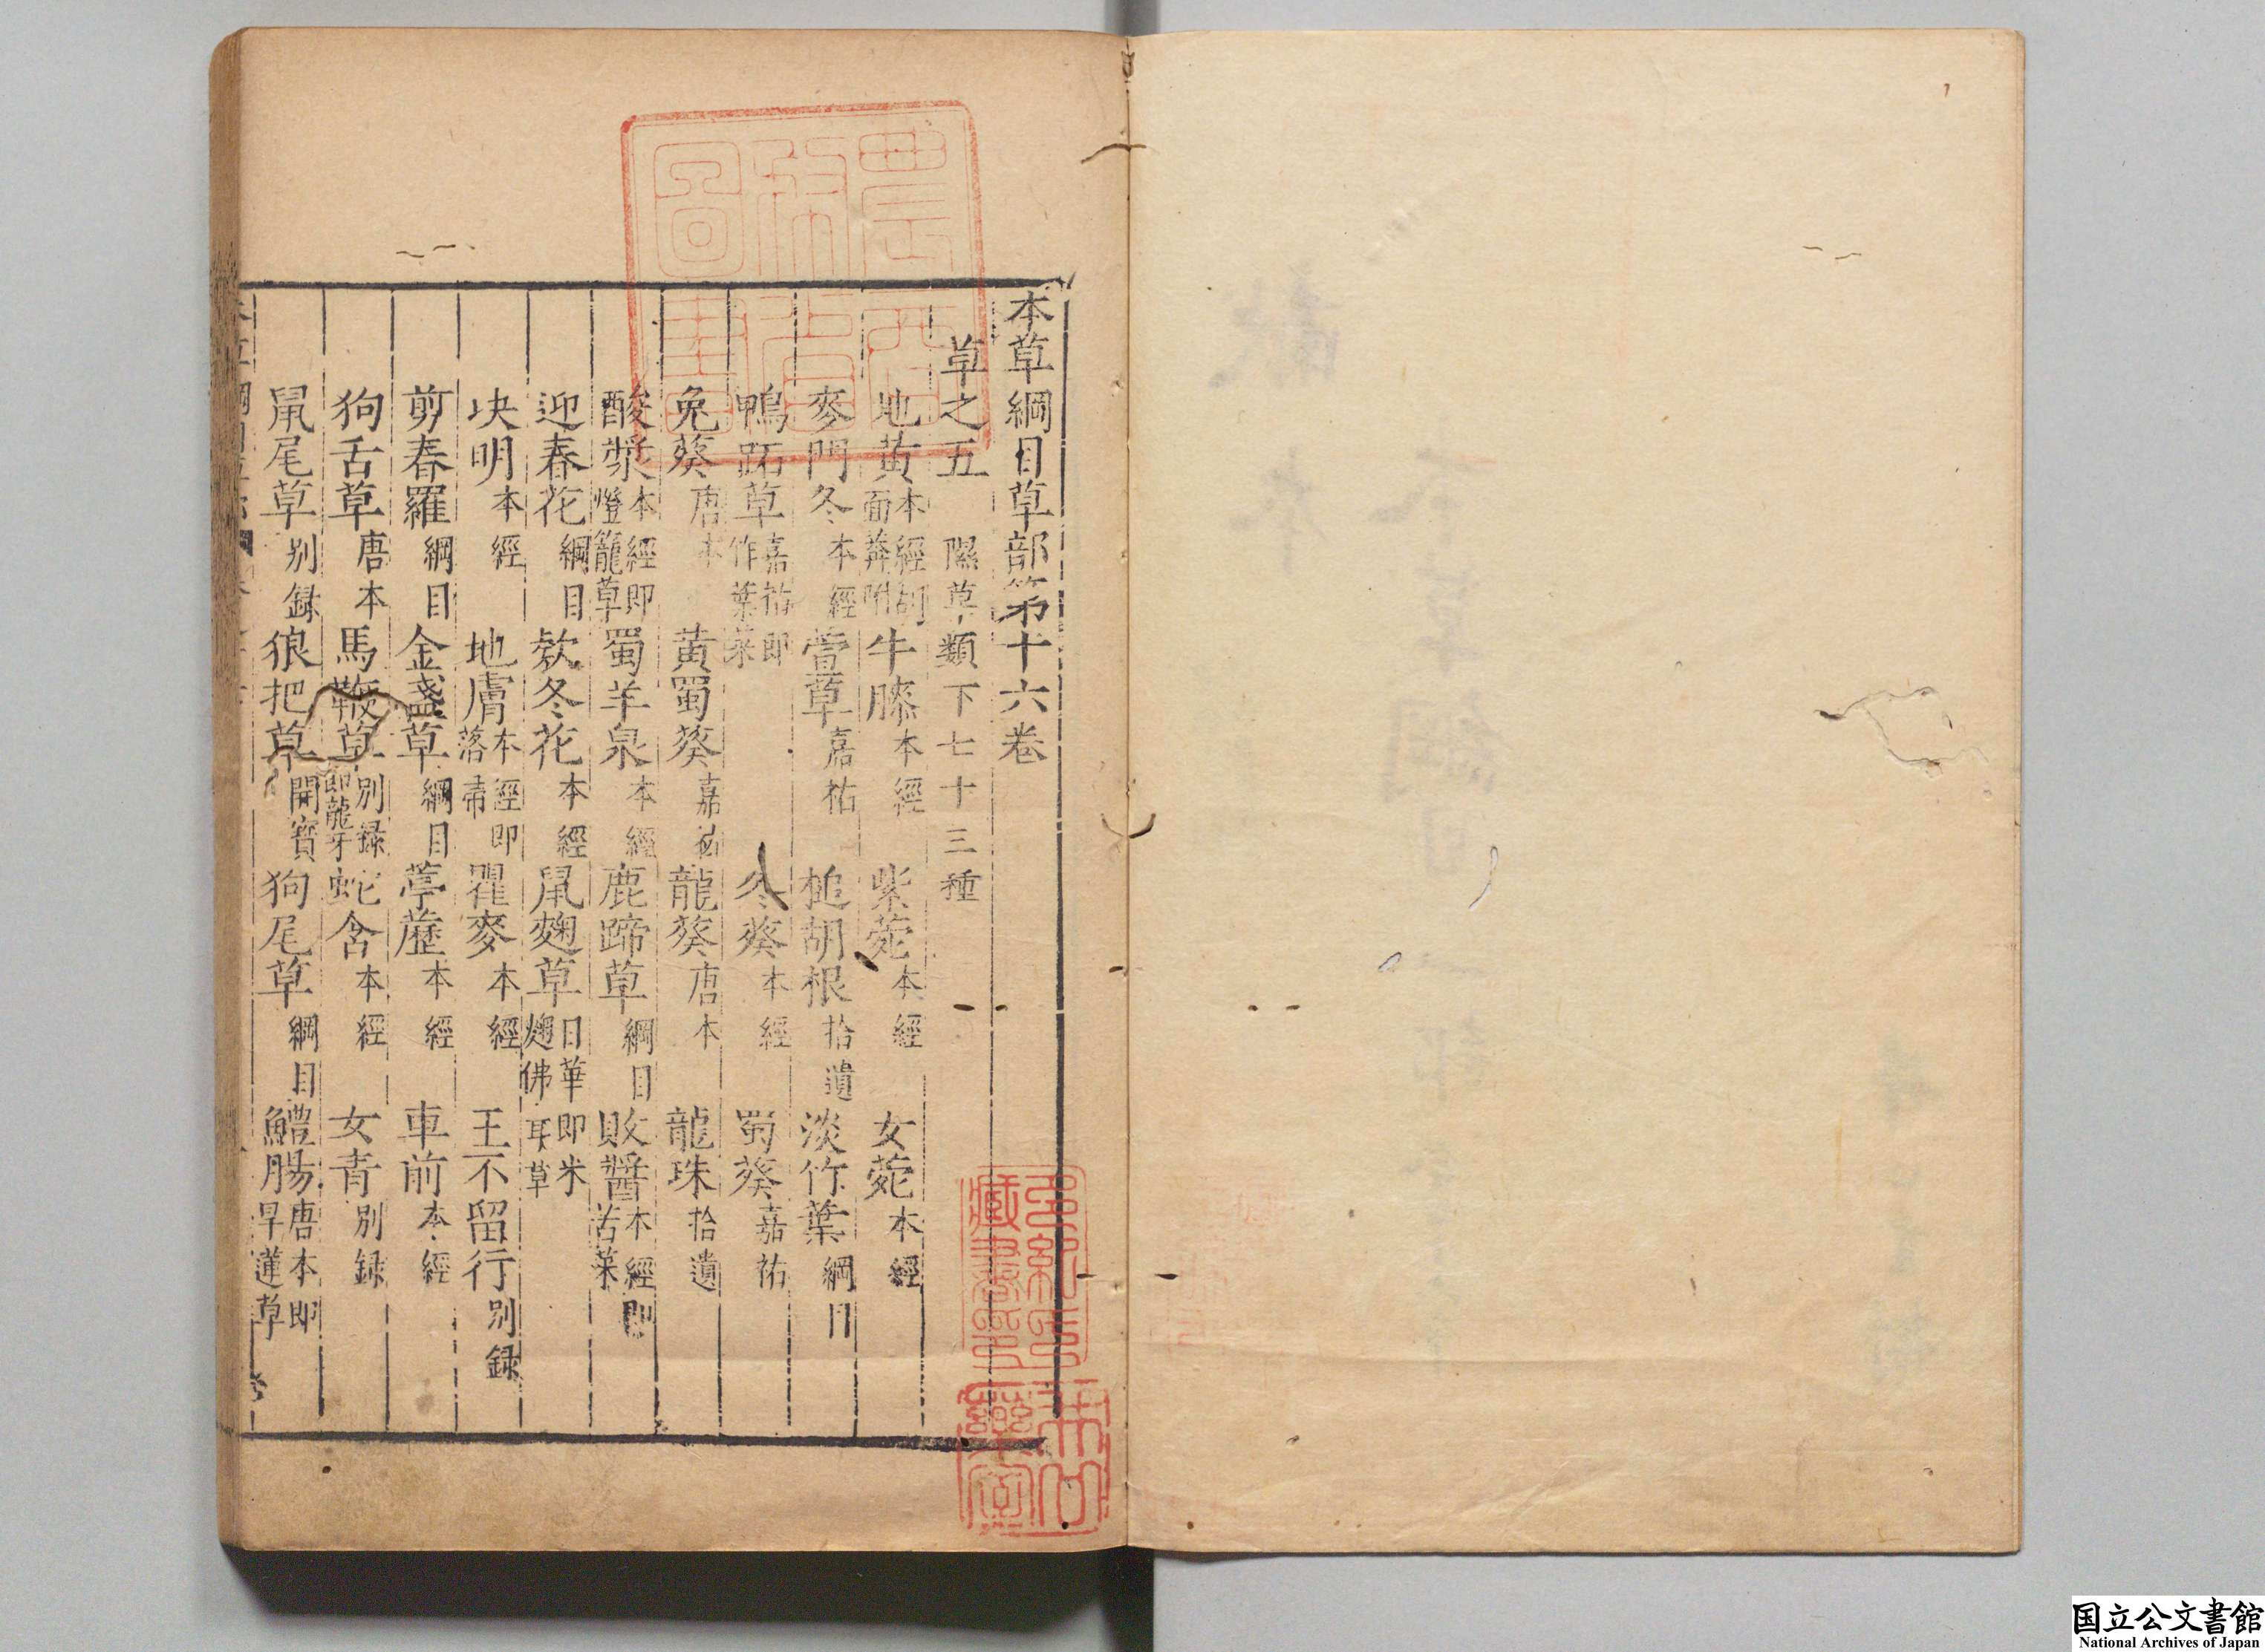 本草綱目草部第十六卷
草之五 隰草類下七十三種
地黃 本經胡面莽附 牛膝 本經 紫菀 本經 女菀 本經
麥門冬 本經 萱草 嘉祐 槌胡根 拾遺 淡竹葉 綱目
鴨跖草 嘉祐即竹葉菜 冬葵 本經 蜀葵 嘉祐
兔葵 唐本 黃蜀葵 嘉祐 龍葵 唐本 龍珠 拾遺
酸漿 本經即燈籠草 蜀羊泉 本經 鹿蹄草 綱目 敗醬 本經即苦菜
迎春花 綱目 欵冬花 本經 鼠麴草 日華即米麴佛耳草
決明 本經 地膚 本經即落帚 瞿麥 本經 王不留行 別録
剪春羅 綱目 金盞草 綱目 葶藶 本經 車前 本經
狗舌草 唐本 馬鞭草 別録即龍牙 蛇含 本經 女青 別録
鼠尾草 别録 狼把草 開寶 狗尾草 綱目 鱧腸 唐本即旱蓮草
国立公文書館
National Archives of Japan